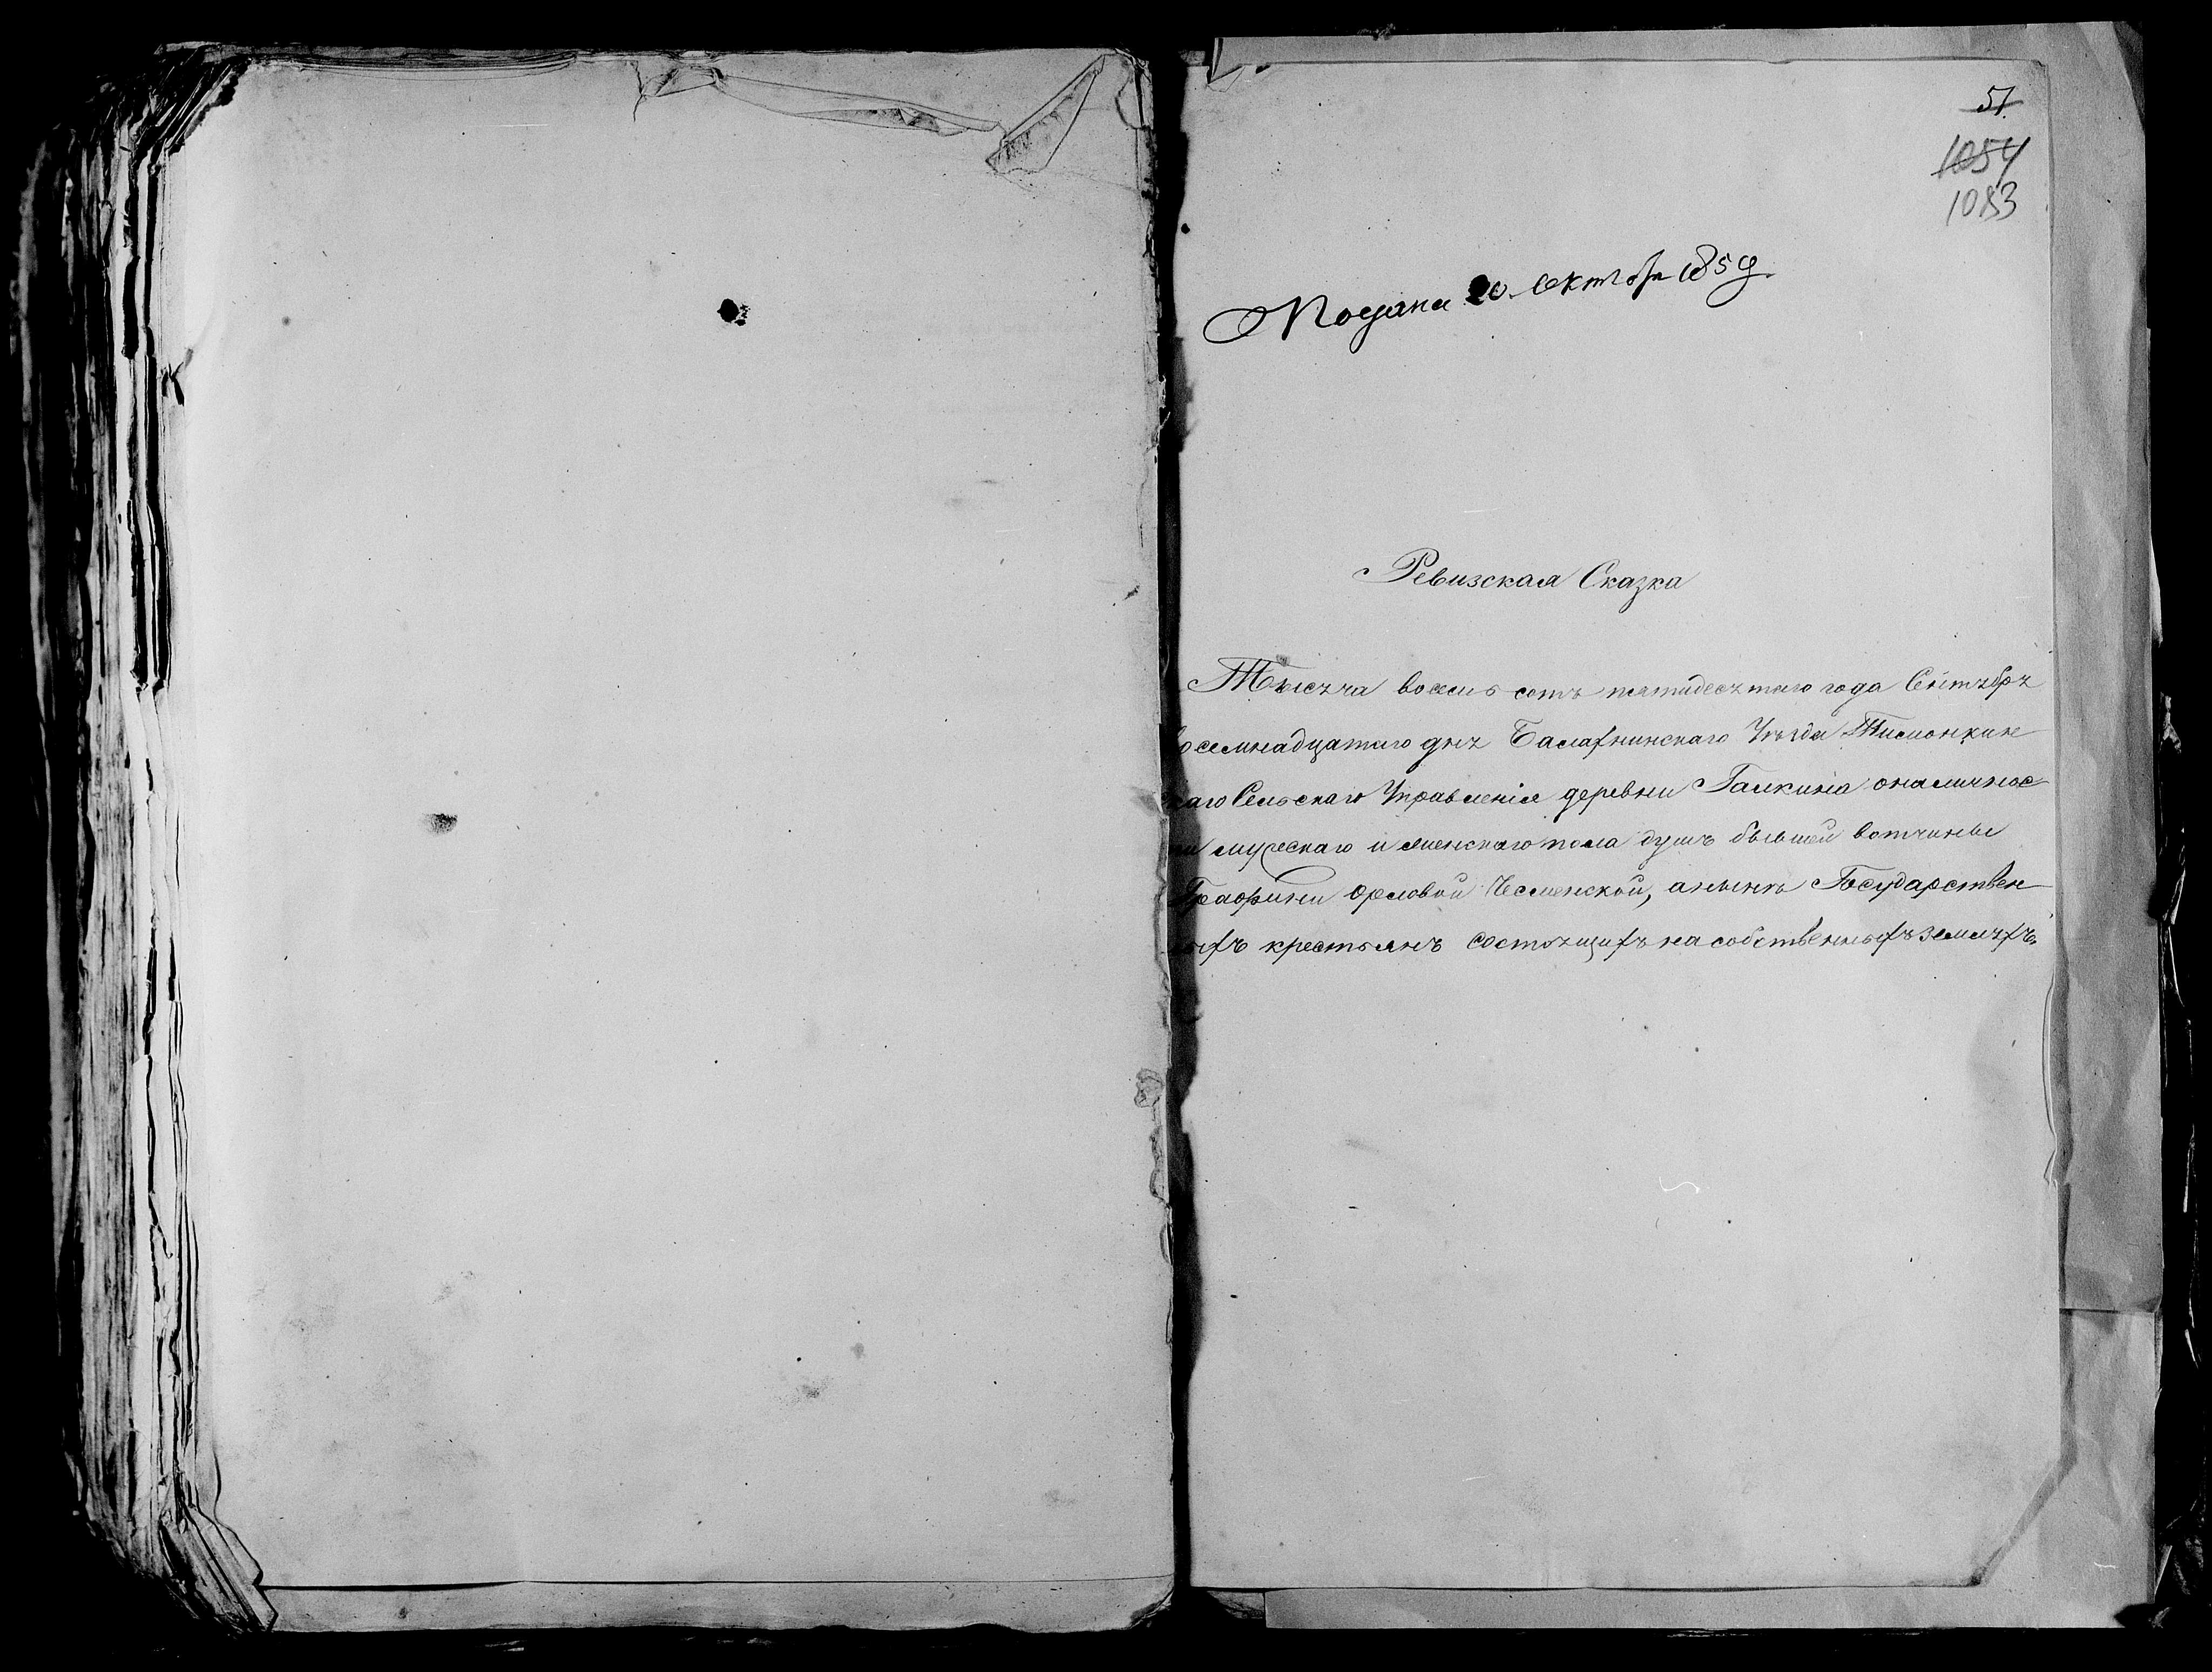 57.
1054
1083
Подана 20 Октября 1850 г.
Ревизская Сказка
Тысяча восемь сотъ пятидесятаго года Сентября
восемнадцатаго дня Балахнинскаго Уѣзда Тимонкин
скаго Сельскаго Управленія деревни Галкина оналичнос
ти мужескаго и женскаго пола душъ бывшей вотчины
Графини Орловой Чесменской, анынѣ Государствен
ныхъ крестьянъ состоящихъ на собственныхъ земляхъ.